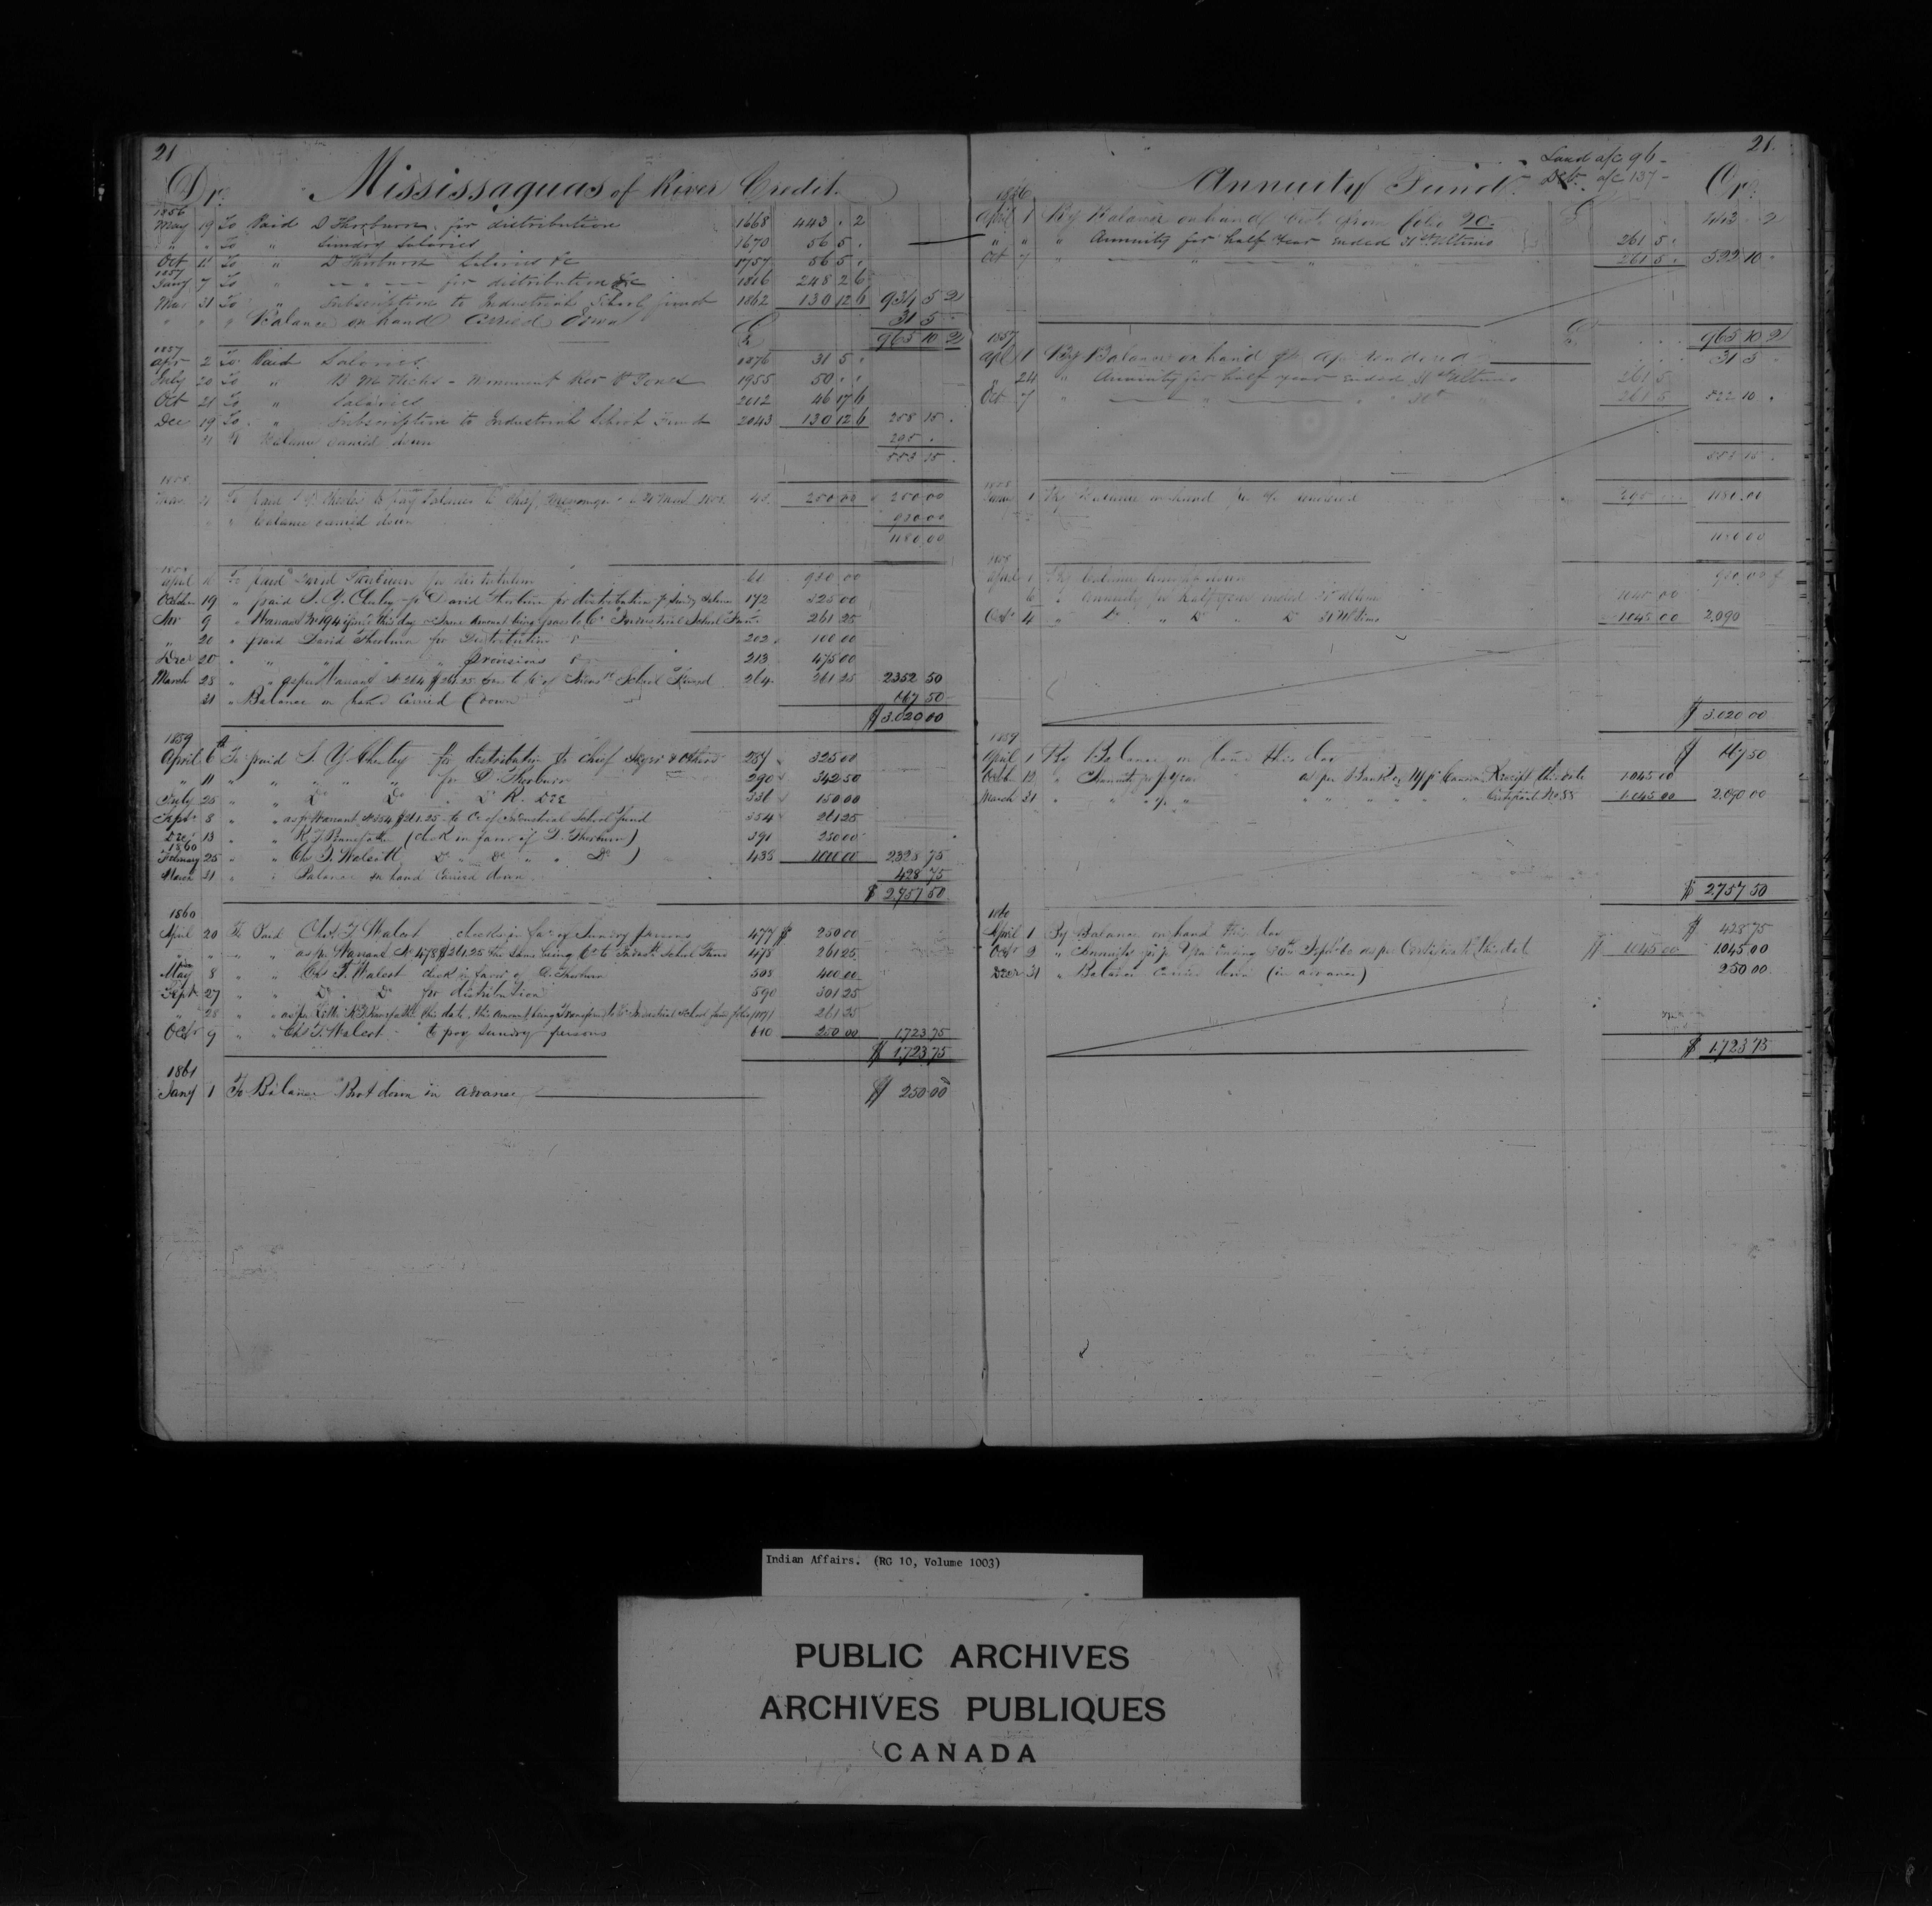 21
Dr. Mississaguas of River Credit.
1856
May 19 To Paid D Thorburn for distribution 1668 443 . 2
" " To " Sundry Salaries 1670 56 5 .
Oct 11 To " D Thorburn Salaries &c 1757 56 5 .
1857
Jany 7 To " " for distribution &c 1816 248 2 6
Mar 31 To " Subscription to Industrial School fund 1862 130 12 6 934 5 2
" " " Balance on hand Carried Down 31 5 -
£ 965 10 2
1857
Apr 2 To Paid Salaries 1876 31 5 .
July 20 To " Monument Rev P Jones 1955 50 . .
Oct 21 To " Salaries 2012 46 17 6
Dec 19 To " Subscription to Industrial School Fund 2043 130 12 6 258 15 .
31 To Balance carried down 295 .
553 15 .
1858
Mar 31 To paid 250 00 250 00
" Balance carried down 930 00
1180 00
1858
April To paid David Thorburn for distribution 930 00
October 19 " paid S. Y. Chesley pr David Thorburn for distribution 172 325 00
Nov 9 " Warrant No 194 this day same amount being pass to Cr Industrial School Fund 261 25
" 20 " paid David Thorburn for Distribution 202 100 00
Decr 20 " " " " provisions 213 475 00
March 28 " " as per Warrant No 264 $261.25 School Fund 264 261 25 2352 50
31 " Balance on hand Carried down 667 50
$ 3.020 00
1859
April 6 To paid S. Y. Chesley for distribution to Chief & Others 287 325 00
" 11 " " " " " for D. Thorburn 290 342 50
July 25 " " Do Do " Do 336 150 00
Septr 8 " " as pr Warrant No 354 $261.25 to Cr of Industrial School fund 354 261 25
Decr 13 " " (check in favor of D. Thorburn) 391 250 00
1860
February 25 " " Ch T. Walcott Do " Do " " Do ) 435 1000 00 2328 75
March 31 " " Balance on hand Carried down 428 75
$ 2757 50
1860
April 20 To Paid Chs. T. Walcot checks in far of Sundry persons 477 $ 250 00
" " " " as per Warrant No 478 $261.25 the same being Cr to Indusl School Fund 478 261 25
May 8 " " Chs T. Walcot check in favor of D. Thorburn 508 400 00
Sept 27 " " Do " Do for distribution 590 301 25
" 28 " " as per this date, this amount being Transferred to Industrial School fund folio 261 25
Octr 9 " " Chs T. Walcot - to pay sundry persons 610 250 00 1.723 75
$ 1.723 75
1861
Jany 1 To Balance Brot down in advance $ 250.00
Annuity Fund. Land a/c 96 - Deb. a/c 137 - Cr. 21.
1856
April 1 By Balance on hand brot from folio 20. £ 443 . 2
" " " Annuity for half Year ended 31st Ultimo 261 5 .
Oct 7 " " " 261 5 . 522 10 .
£ 965 10 2
1857
Apl 1 By Balance on hand pr a/c rendered 31 5 .
" 24 " Annuity for half year ended 31st Ultimo 261 5
Oct 7 " " " 30th " 261 5 522 10 .
553 15 .
1858
Jany 1 By Balance on hand pr a/c rendered 295 1180.00
1180 00
1858
April 1 By balance brought down 930.00
" 6 " Annuity for half year ended 31st Ultimo 1045 00
Octr 4 " Do " Do " Do Ultimo 1045 00 2.090
$ 3.020 00
1859
April 1 By Balance on hand this day $ 667 50
Octr 12 " Annuity for ½ year as per Bank of Canada Receipt this date 1.045 00
March 31 " " " ½ " " " " " " Certificate No 88 1.045 00 2.090 00
$ 2.757 50
1860
April 1 By Balance on hand this day $ 428 75
Octr 2 " Annuity for ½ Year ending 30th Septr 60 as per Certificate this date $ 1.045 00 1.045 00
Decr 31 " Balance carried down (in advance) 250 00
$ 1.723 75
Indian Affairs. (RG 10, Volume 1003)
PUBLIC ARCHIVES
ARCHIVES PUBLIQUES
CANADA